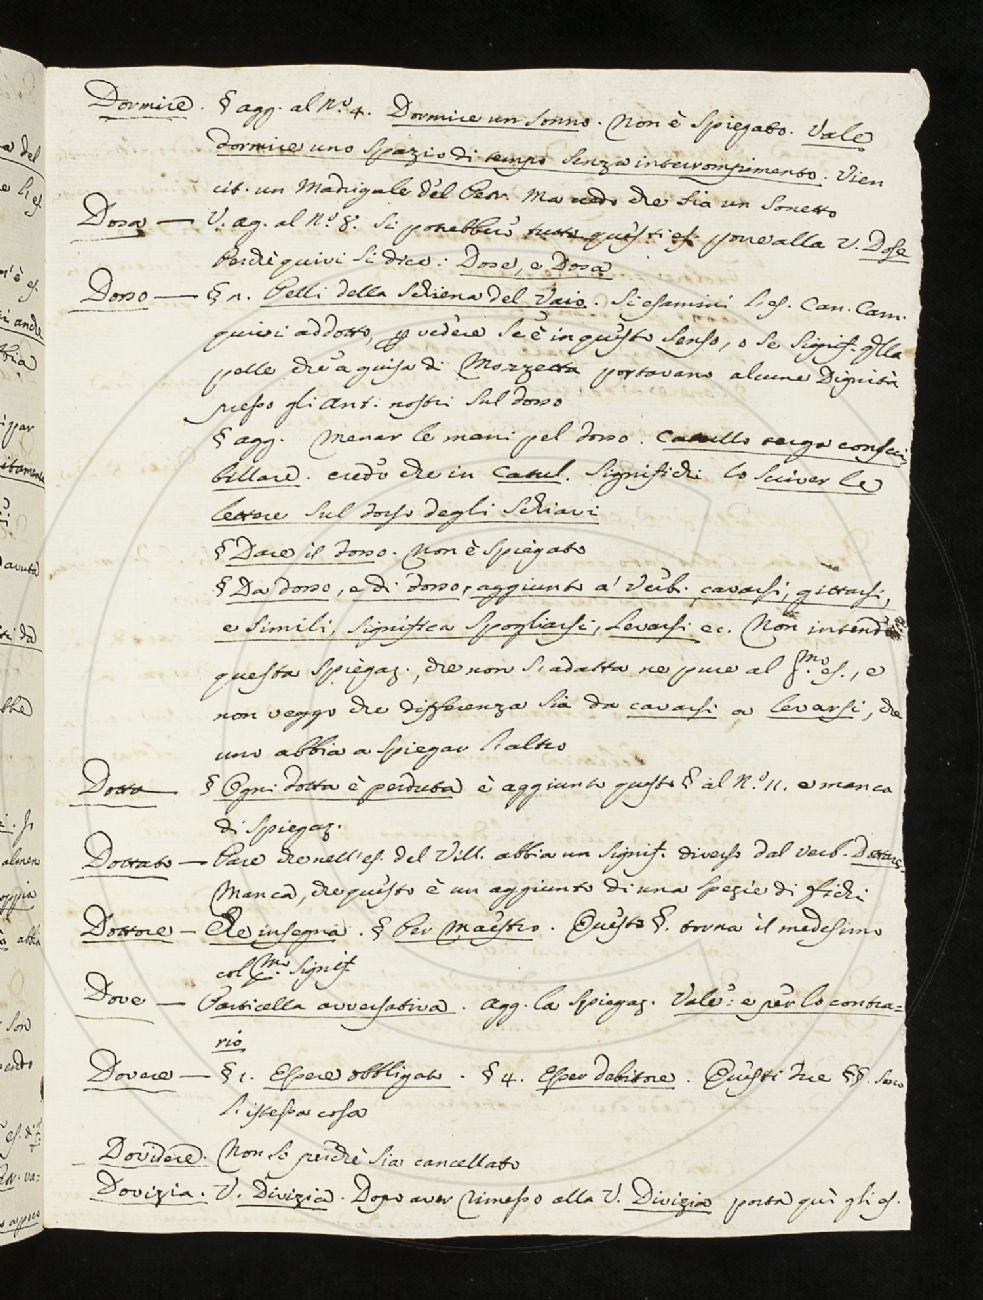 Dormire. § agg. al N.º 4. Dormire un sonno. Non è spiegato. Vale
dormire uno spazio di tempo senza interrompimento. Vien
cit. un Madrigale del Petr. Ma credo che sia un sonetto
Dosa — V. ag. al N.º 8. Si potrebbero tutti questi es. porre alla V. Dose
perchè quivi si dice: Dose, e Dosa
Dosso — § 2. Pelli della schiena del Vaio. Si esamini l'es. Can. Carn.
quivi addotto, p vedere se è in questo senso, o se signif. qlla
pelle che a guisa di Mozzetta portavano alcune Dignità
presso gli Ant. nostri sul dosso
§ agg. Menar le mani pel dosso. Catullo terga conscri
billare. credo che in Catul. significhi lo scriver le
lettere sul dosso degli schiavi
§ Dare il dosso. Non è spiegato
§ Da dosso, e di dosso, aggiunto a' Verb. cavarsi, gittarsi,
e simili, significa spogliarsi, Levarsi ec. Non intendo
questa spiegaz., che non si adatta ne pure al pmo es., e
non veggo che differenza sia da cavarsi a levarsi, che
uno abbia a spiegar l'altro
Dotta — § Ogni dotta è perduta è aggiunto questo § al N.º 11. e manca
di spiegaz.
Dottato — Pare che nell'es. del Vill. abbia un signif. diverso dal verb. Dottare.
Manca, che questo è un aggiunto di una spezie di fichi
Dottore — Che insegna. § Per Maestro. Questo §. torna il medesimo
col pmo signif
Dove — Particella avversativa. agg. la spiegaz. Vale: e per lo contra-
rio
Dovere — § 1. Essere obbligato. § 4. Esser debitore. Questi due §§. sono
l'istessa cosa
Dovidere. Non so perchè sia cancellato
Dovizia. V. Divizia. Dopo aver rimesso alla V. Divizia porta quì gli es.